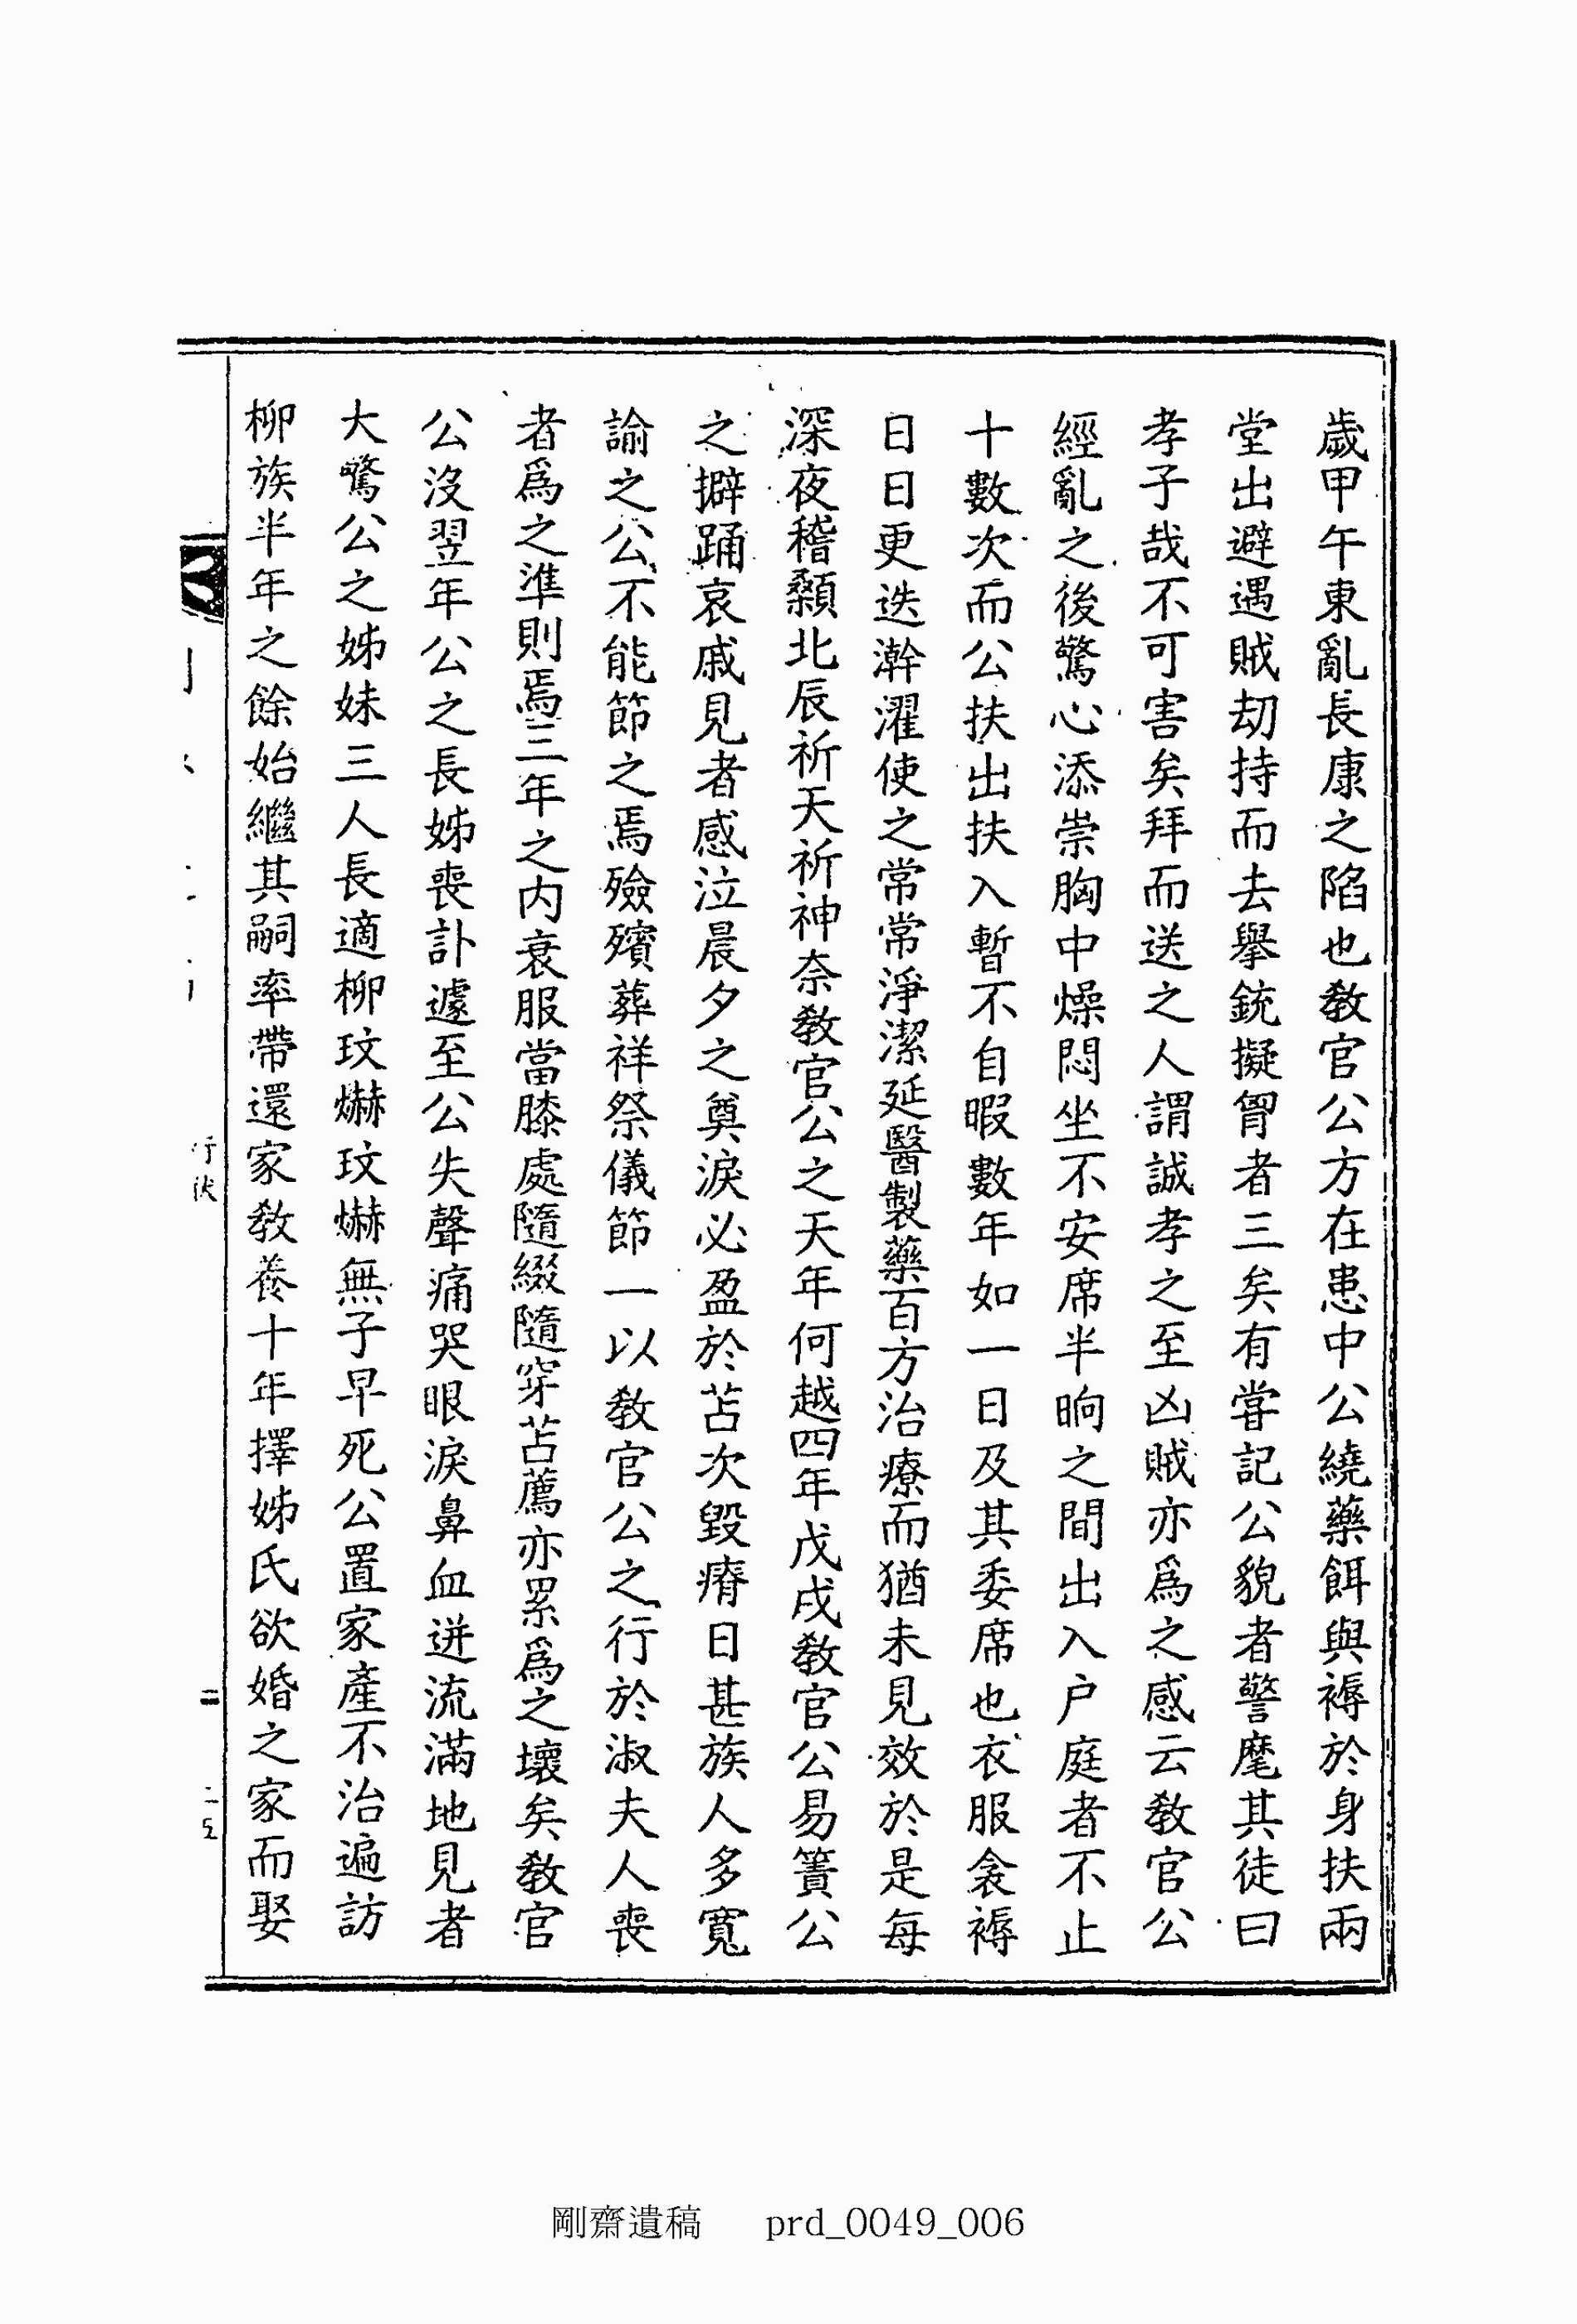 歲甲午東亂長康之陷也敎官公方在患中公繞藥餌與褥於身扶兩
堂出避遇賊刧持而去擧銃擬胷者三矣有甞記公貌者警麾其徒曰
孝子哉不可害矣拜而送之人謂誠孝之至凶賊亦爲之感云敎官公
經亂之後驚心添祟胸中燥悶坐不安席半晌之間出入户庭者不止
十數次而公扶出扶入暫不自暇數年如一日及其委席也衣服衾褥
日日更迭澣濯使之常常淨潔延醫製藥百方治療而猶未見效於是每
深夜稽顙北辰祈天祈神奈敎官公之天年何越四年戊戌敎官公易簀公
之擗踊哀戚見者感泣晨夕之奠淚必盈於苫次毀瘠日甚族人多寬
諭之公不能節之焉殮殯葬祥祭儀節一以敎官公之行於淑夫人喪
者爲之準則焉三年之内衰服當膝處隨綴隨穿苫薦亦累爲之壞矣敎官
公沒翌年公之長姊喪訃遽至公失聲痛哭眼淚鼻血迸流滿地見者
大驚公之姊妹三人長適柳玟爀玟爀無子早死公置家產不治遍訪
柳族半年之餘始繼其嗣率帶還家敎養十年擇姊氏欲婚之家而娶
行狀
二
剛齋遺稿 prd_0049_006